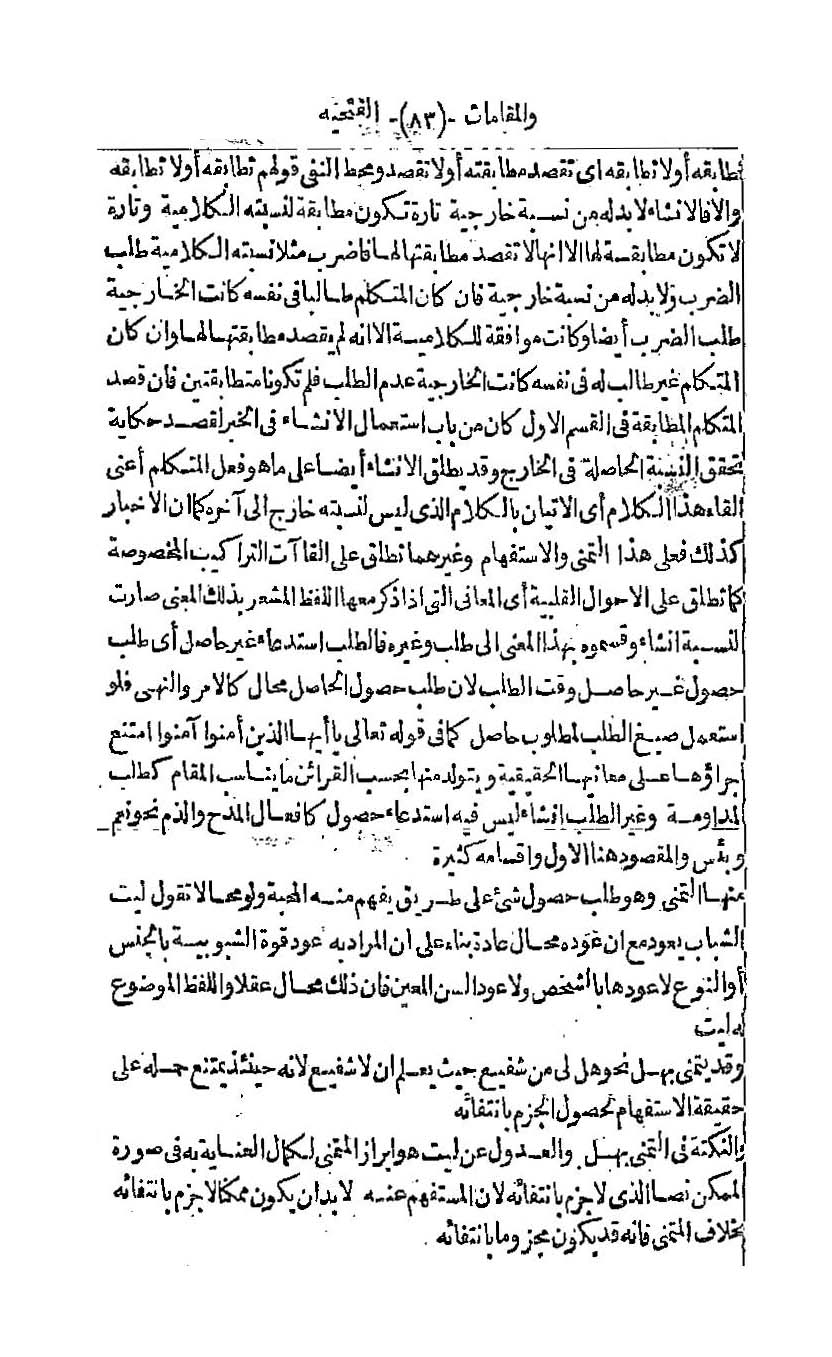 والمقامات -(٨٣)- الفتحيه
تطابقه أولا تطابقه اى تقصد مطابقته أولا تقصد ومحط النفى قولهم تطابقه أولا تطابقه
والا فالانشاء لابد له من نسبة خارجية تارة تكون مطابقة لنسبته الكلامية وتارة
لا تكون مطابقة لها الا انها لا تقصد مطابقتها لها فاضرب مثلا نسبته الكلامية طلب
الضرب ولا بد له من نسبة خارجية فان كان المتكلم طالبا فى نفسه كانت الخارجية
طلب الضرب أيضا وكانت موافقة للكلامية الا انه لم يقصد مطابقتها لها وان كان
المتكلم غير طالب له فى نفسه كانت الخارجية عدم الطلب فلم تكونا متطابقتين فان قصد
المتكلم المطابقة فى القسم الاول كان من باب استعمال الانشاء فى الخبر لقصد حكاية
تحقق النسبة الحاصلة فى الخارج وقد يطلق الانشاء أيضا على ما هو فعل المتكلم أعنى
القاء هذا الكلام أى الاتيان بالكلام الذى ليس لنسبته خارج الى آخره كما ان الاخبار
كذلك فعلى هذا التمنى والاستفهام وغيرهما تطلق على القاآت التراكيب المخصوصة
كما تطلق على الاحوال القلبية أى المعانى التى اذا ذكر معها اللفظ المشعر بذلك المعنى صارت
النسبة انشاء وقسموه بهذا المعنى الى طلب وغيره فالطلب استدعاء غير حاصل أى طلب
حصول غير حاصل وقت الطلب لان طلب حصول الحاصل محال كالامر والنهى فلو
استعمل صيغ الطلب لمطلوب حاصل كما فى قوله تعالى يا أيها الذين أمنوا آمنوا امتنع
اجراؤها على معانيها الحقيقية ويتولد منها بحسب القرائن ما يناسب المقام كطلب
المداومة وغير الطلب انشاء ليس فيه استدعاء حصول كافعال المدح والذم نحو نعم
وبئس والمقصود هنا الاول واقسامه كثيرة
منها التمنى وهو طلب حصول شئ على طريق يفهم منه المحبة ولو محالا تقول ليت
الشباب يعود مع ان عوده محال عادة بناء على ان المراد به عود قوة الشبوبية بالجنس
أو النوع لا عودها بالشخص ولا عود السن المعين فان ذلك محال عقلا واللفظ الموضوع
له ليت
وقد يتمنى بهل نحو هل لى من شفيع حيث يعلم ان لا شفيع لانه حينئذ يمتنع حمله على
حقيقة الاستفهام لحصول الجزم بانتفائه
والنكتة فى التمنى بهل والعدول عن ليت هو ابراز المتمنى لكمال العناية به فى صورة
الممكن نصا الذى لا جزم بانتفائه لان المستفهم عنه لابد ان يكون ممكنا لا جزم بانتفائه
بخلاف المتمنى فانه قد يكون مجزوما بانتفائه .